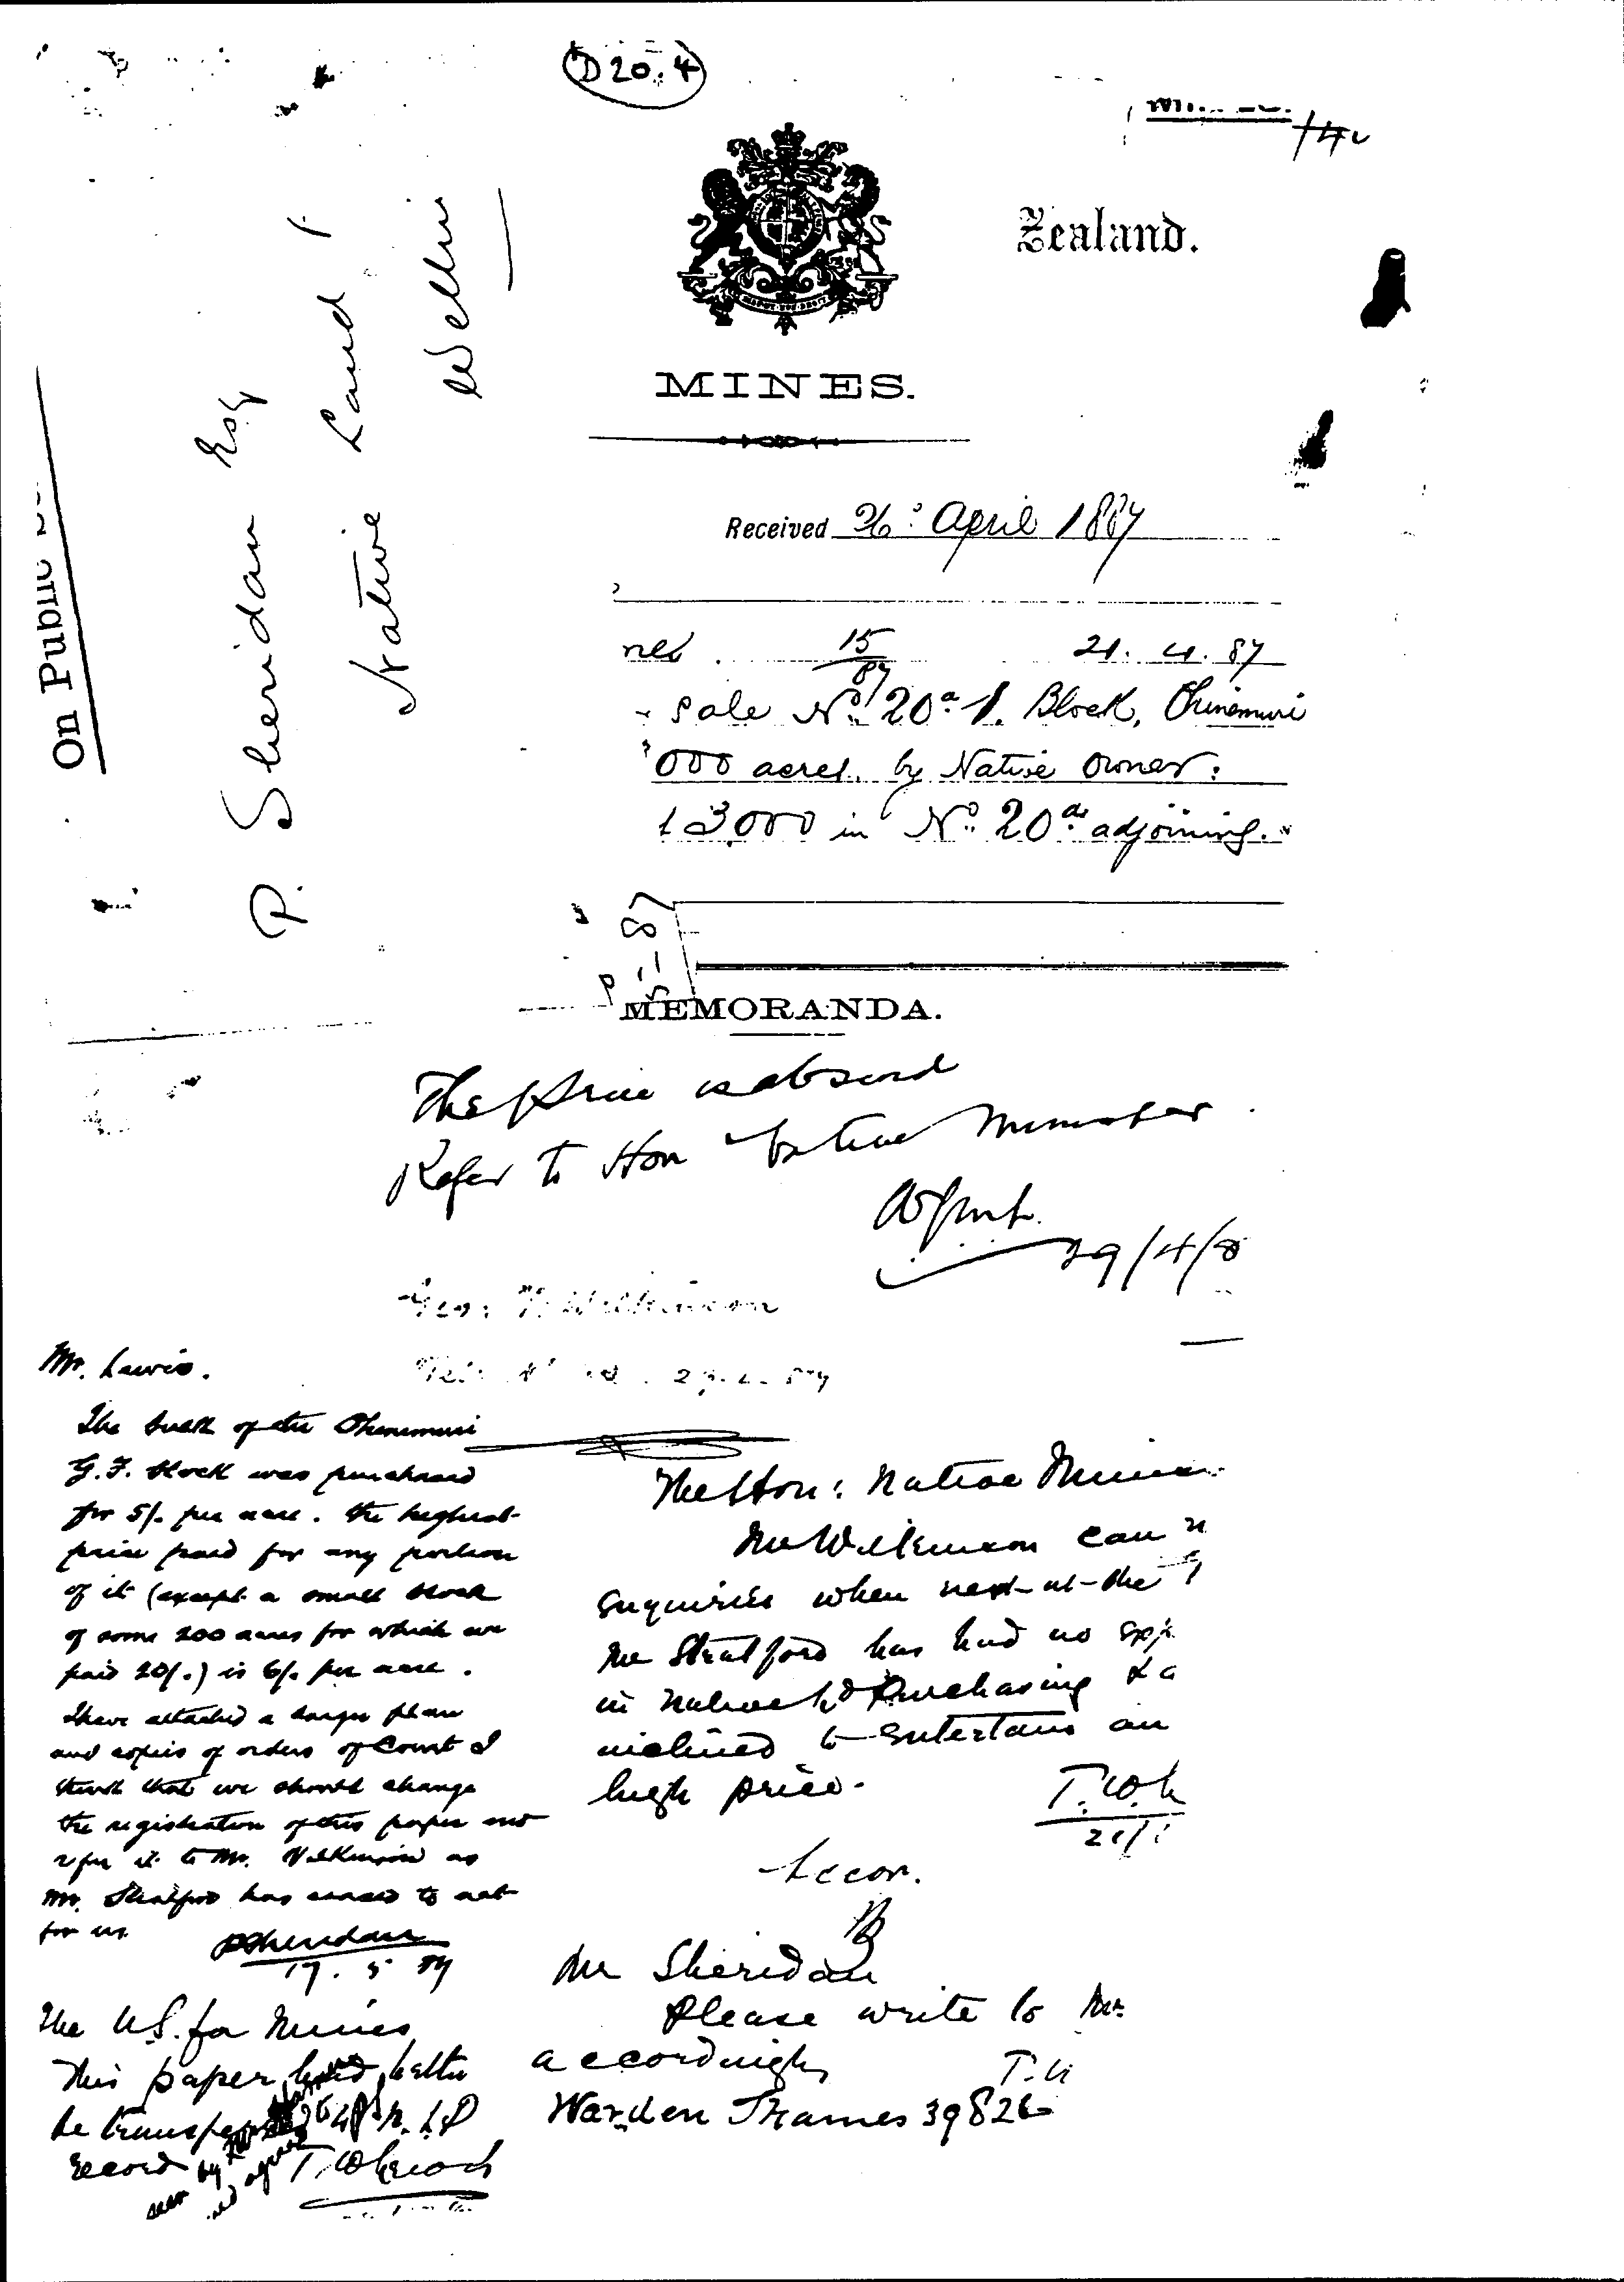 D 20.4
Zealand.
MINES.
On Public
P. Sheridan Esq
Native Land
Wellin
Received 26: April 1887
15/87 21. 4. 87
Sale No. 20a 1. Block, Ohinemuri
000 acres. by Native Owner:
13,000 in No. 20d adjoining.
MEMORANDA.
The price is absurd
Refer to Hon Native Minister
29/4/8
Geo: T. Wilkinson
Mr. Lewis.
The bulk of the Ohinemuri
G.F. block was purchased
for 5/- per acre. the highest
price paid for any portion
of it (except a small block
of some 200 acres for which we
paid 20/-) is 6/- per acre.
I have attached a larger plan
and copies of orders of Court I
think that we should change
the registration of this paper and
refer it to Mr. Wilkinson as
Mr. Stratford has ceased to act
for us
PSheridan
17. 5 87
The U.S. for Mines
This paper had better
be transferred to N. L. P
record
T.W. Lewis
The Hon: Native Minis
Mr Wilkinson can
enquiries when next at the T
Mr Stratford has had no exp
in native Ld Purchasing & a
inclined to entertain an
high price.
T.W.L
Accor.
Mr Sheridan
Please write to Mr.
accordingly
Warden Thames 39826